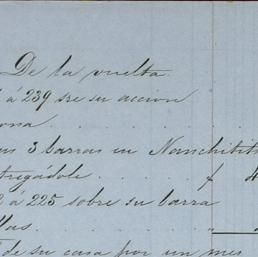 De la vuelta
á 239 sre su accion
ona
us 3 barras en Nanchitit
tregadole f
2 á 225 sobre su barra
llas "
de su casa por un mes